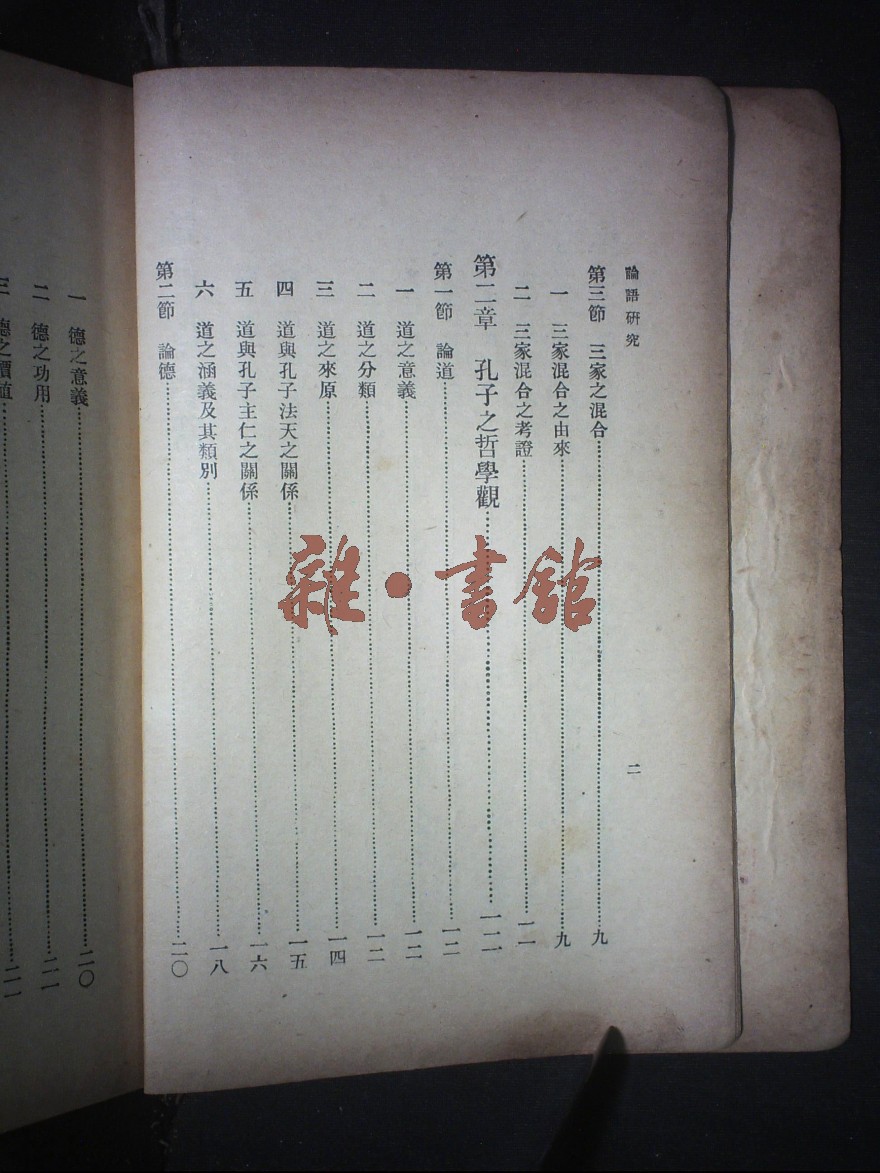 論語研究
第三節　三家之混合………九
一　三家混合之由來………九
二　三家混合之考證………一一
第二章　孔子之哲學觀………一二
第一節　論道………一二
一　道之意義………一二
二　道之分類………一二
三　道之來原………一四
四　道與孔子法天之關係………一五
五　道與孔子主仁之關係………一六
六　道之涵義及其類別………一八
第二節　論德………二〇
二
一　德之意義………二〇
二　德之功用………二一
三　德之價值………二一
雜·書館